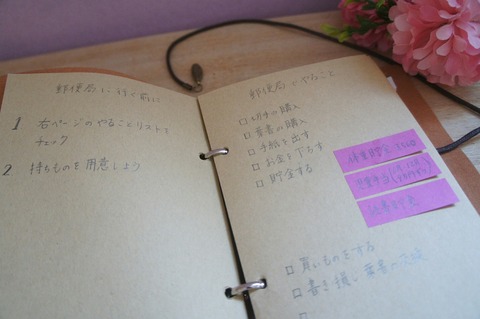 郵便局に行く前に
1 右ページのやることリストを
チェック
2 持ちものを用意しよう
郵便局でやること
□ 切手の購入
□ 葉書の購入
□ 手紙を出す
□ お金を下ろす
□ 貯金する
□ 買いものをする
□ 書き損じ葉書の交換
□